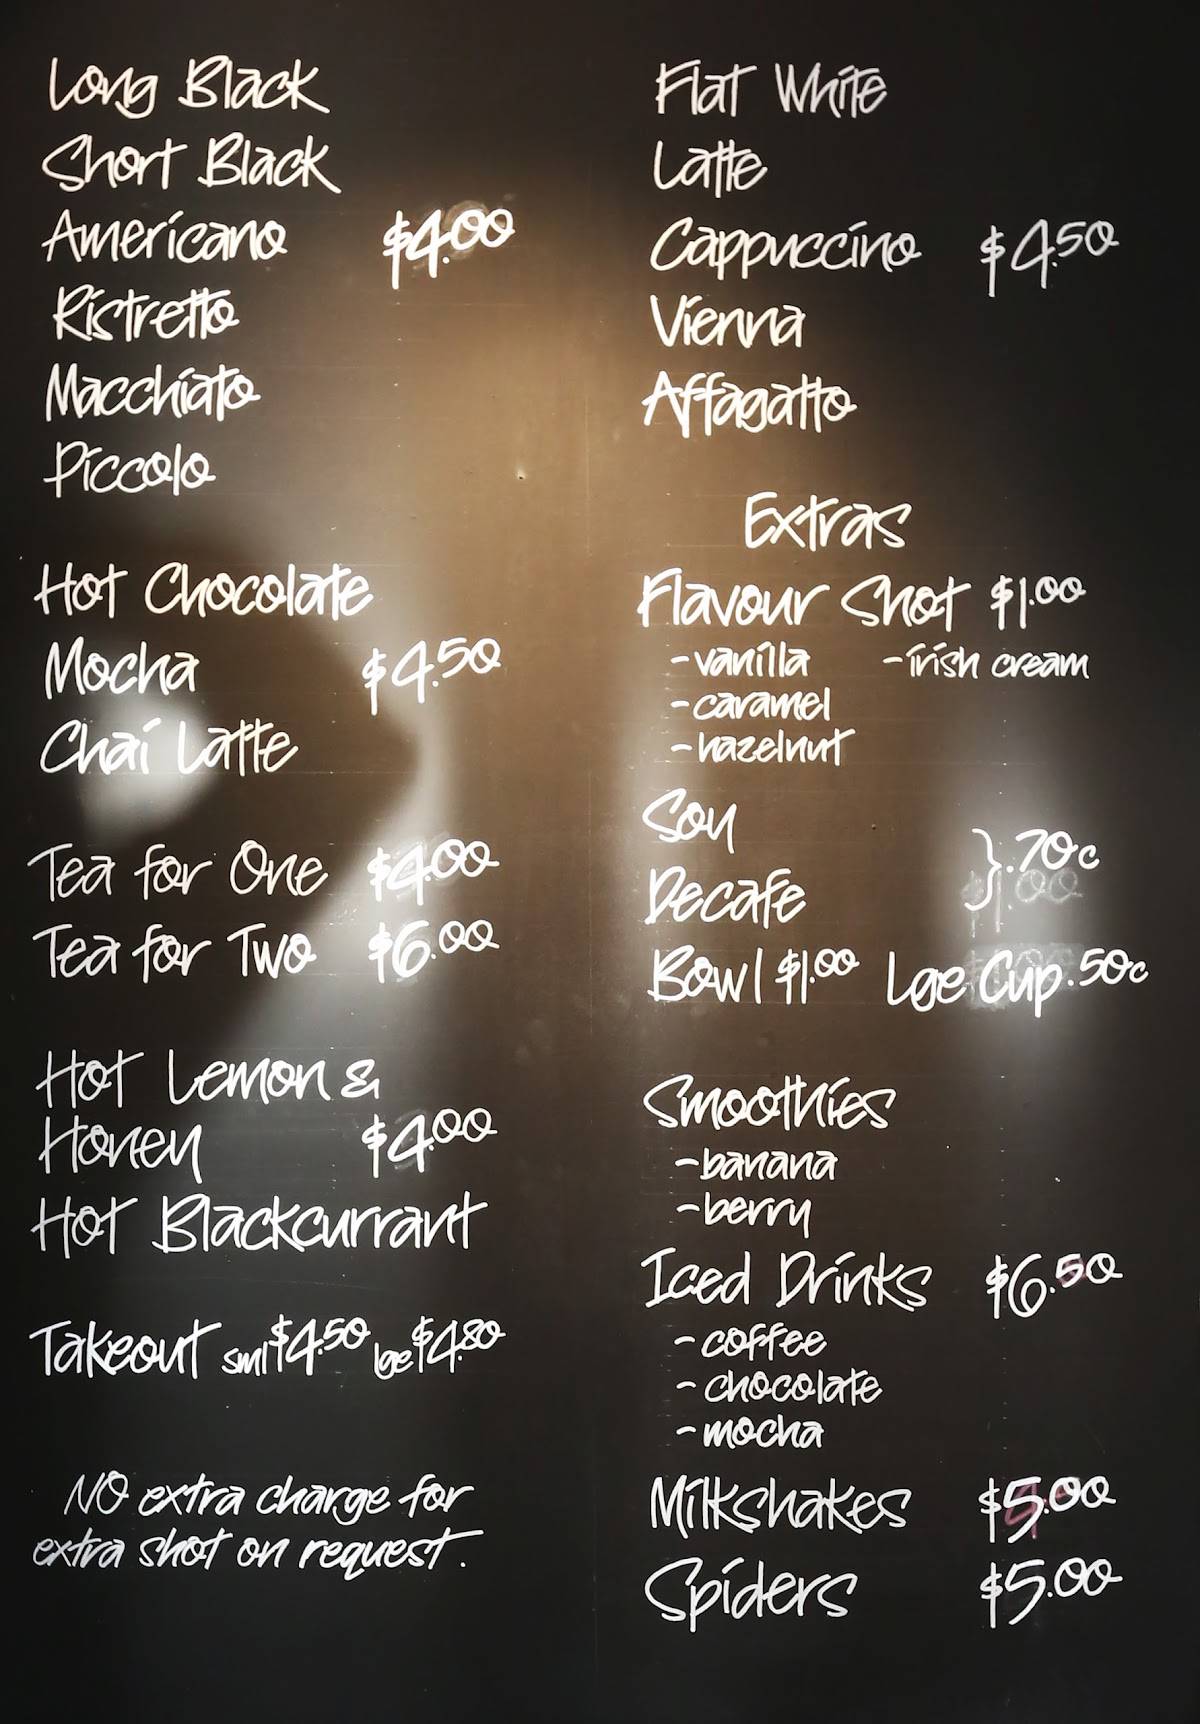 Long Black
Short Black
Americano $4.00
Ristretto
Macchiato
Piccolo
Hot Chocolate
Mocha $4.50
Chai Latte
Tea for One $4.00
Tea for Two $6.00
Hot Lemon &
Honey $4.00
Hot Blackcurrant
Takeout sml $4.50 lge $4.80
NO extra charge for
extra shot on request.
Flat White
Latte
Cappuccino $4.50
Vienna
Affagatto
Extras
Flavour Shot $1.00
- vanilla - irish cream
- caramel
- hazelnut
Soy
} .70c
Decafe
Bowl $1.00 Lge Cup .50c
Smoothies
- banana
- berry
Iced Drinks $6.50
- coffee
- chocolate
- mocha
Milkshakes $5.00
Spiders $5.00